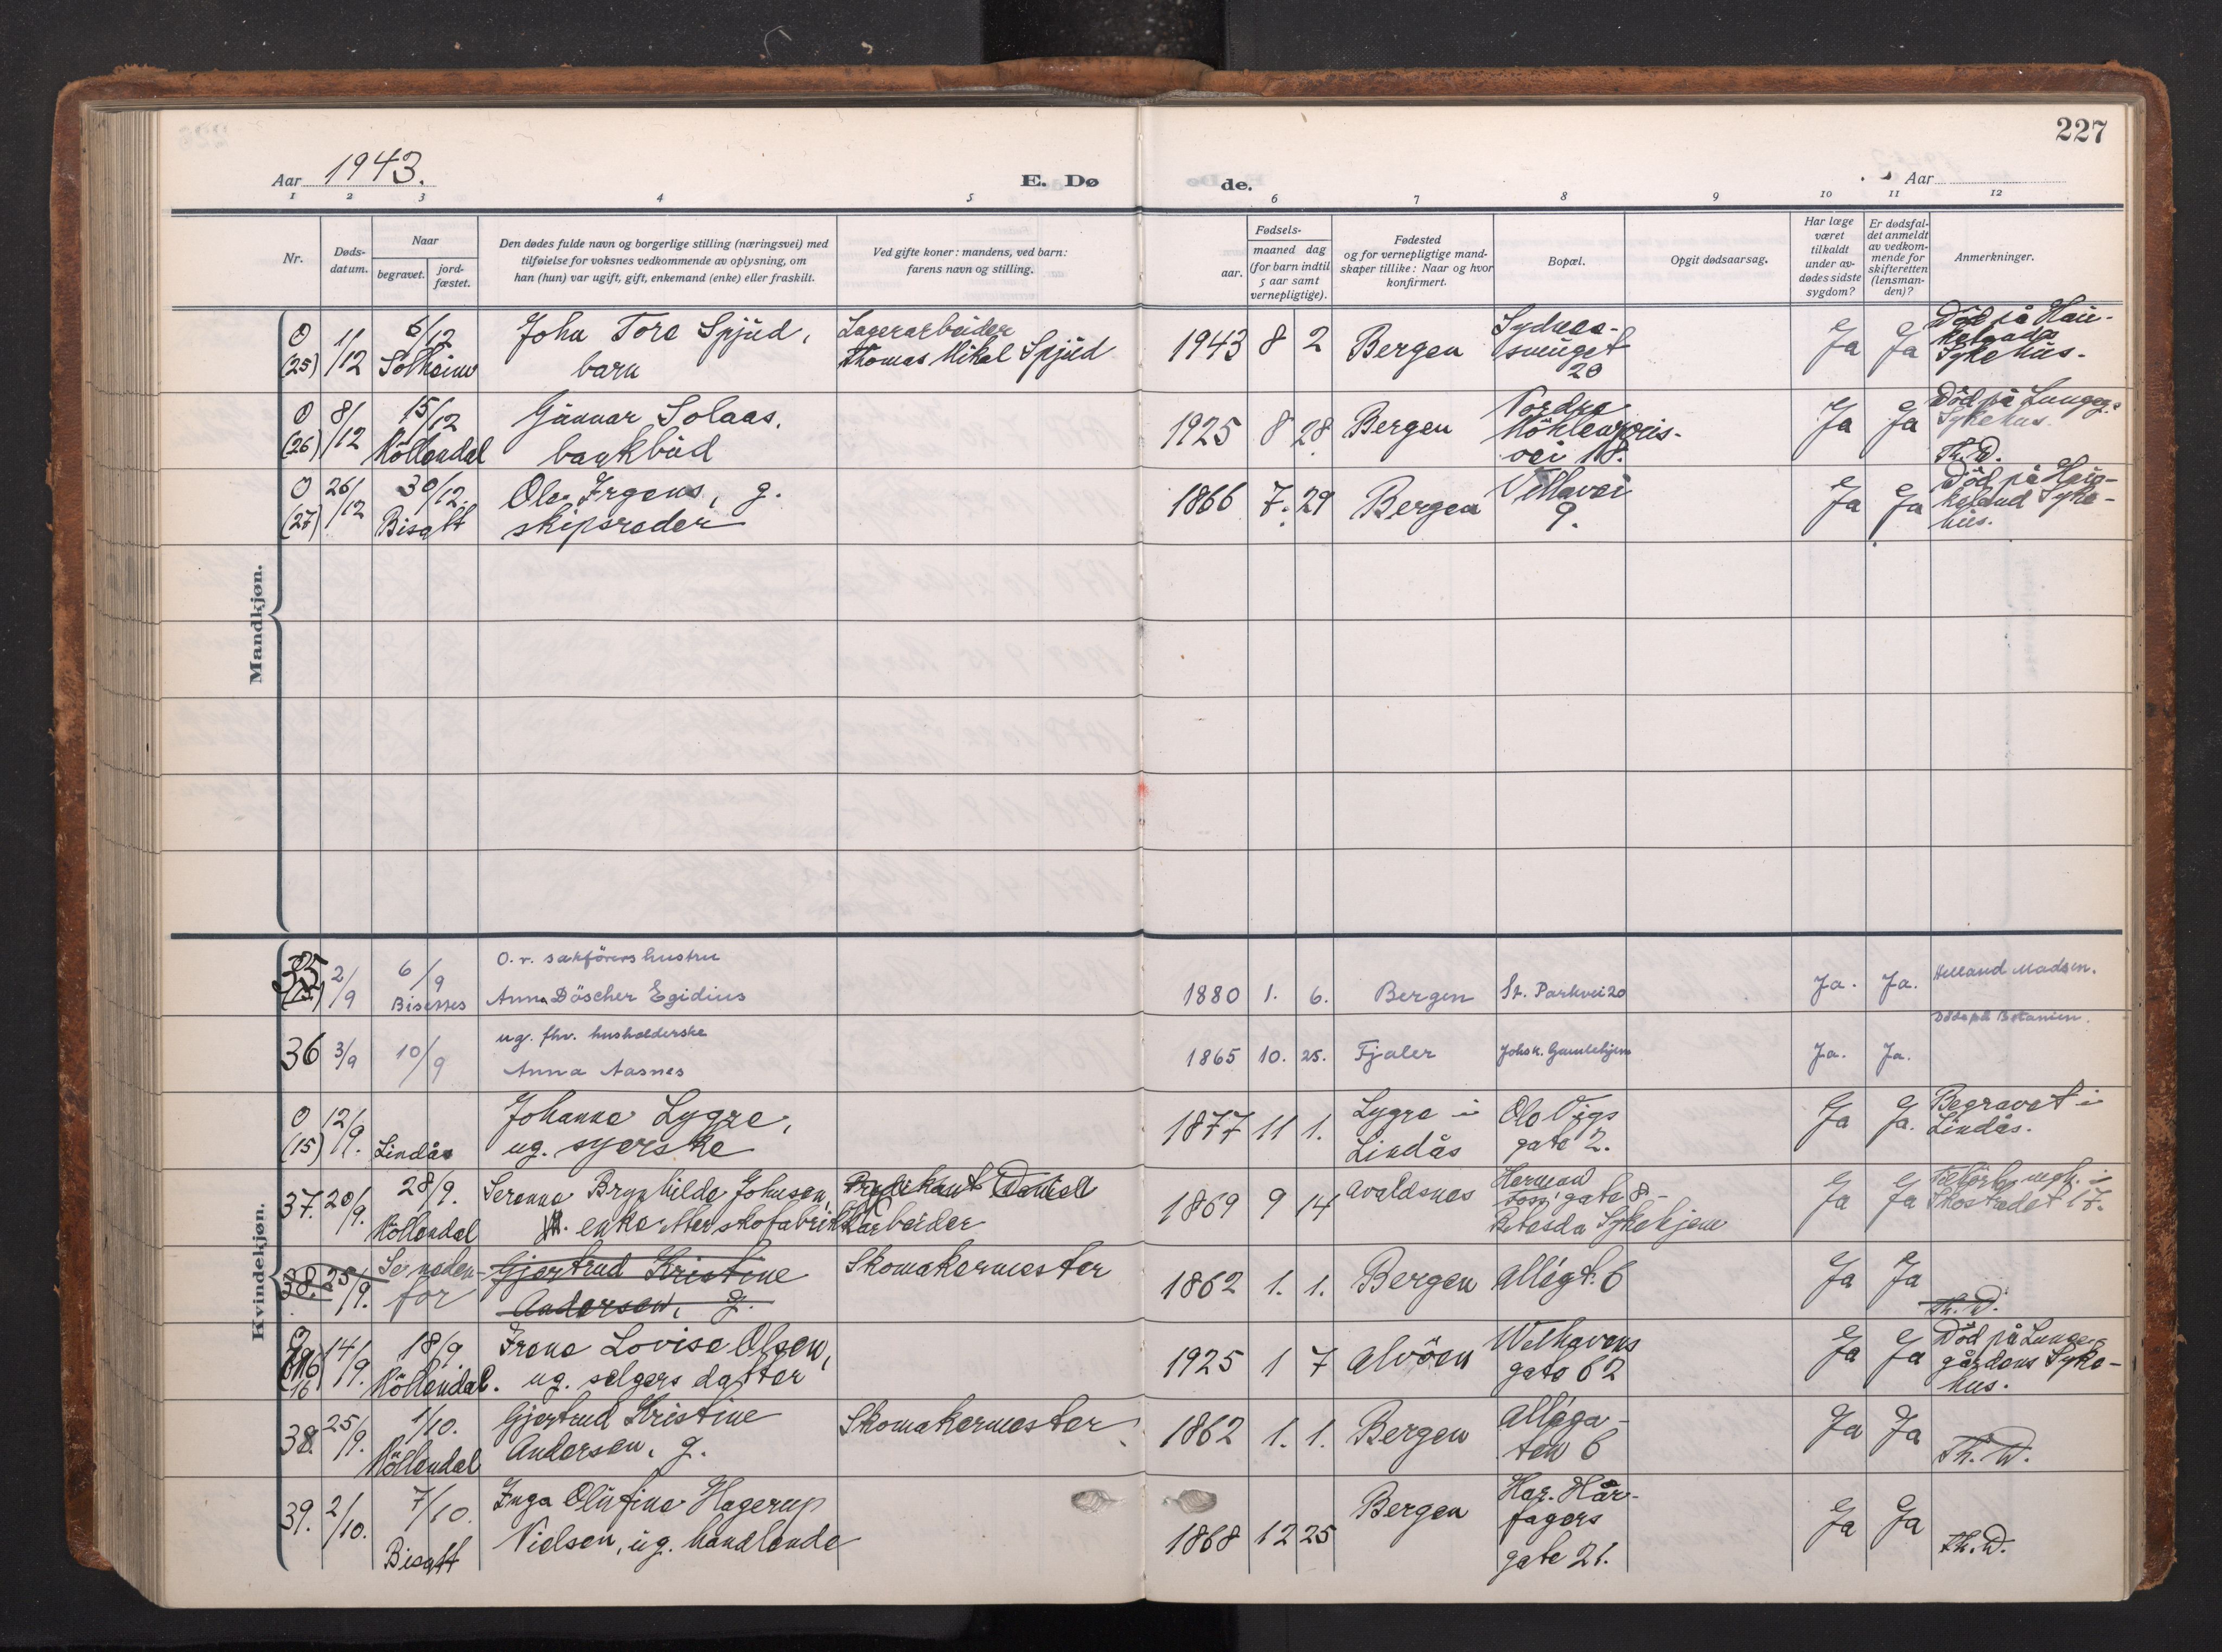 227
Aar 1943.
E. Dø
de.
Aar
1 2 3 4 5 6 7 8 9 10 11 12
Nr.
Døds-
datum.
Naar
begravet.
jord-
fæstet.
Den dødes fulde navn og borgerlige stilling (næringsvei) med
tilføielse for voksnes vedkommende av oplysning, om
han (hun) var ugift, gift, enkemand (enke) eller fraskilt.
Ved gifte koner: mandens, ved barn:
farens navn og stilling.
Fødsels-
aar.
maaned dag
(for barn indtil
5 aar samt
vernepligtige).
Fødested
og for vernepligtige mand-
skaper tillike: Naar og hvor
konfirmert.
Bopæl.
Opgit dødsaarsag.
Har læge
været
tilkaldt
under av-
dødes sidste
sygdom?
Er dødsfal-
det anmeldt
av vedkom-
mende for
skifteretten
(lensman-
den)?
Anmerkninger.
Mandkjøn.
0 (25) 1/12 6/12 Solheim
John Tore Spjud,
barn
Lagerarbeider
Thomas Mikal Spjud
1943 8 2 Bergen
Sydnes-
smuget
20
Ja Ja
Död på Hau-
kelands
Sykehus.
0 (26) 8/12 15/12 Möllendal
Gunnar Solaas,
bankbud
1925 8 28 Bergen
Nordre
Möhlenpris-
vei 18.
Ja Ja
Död på Lungeg.
Sykehus.
Th. D.
0 (27) 26/12 30/12. Bisatt
Ole Irgens, g.
skipsreder
1866 7. 29 Bergen
Villavei
9.
Ja Ja
Död på Hau-
keland Syke-
hus.
Kvindekjøn.
35 2/9 6/9 Bisettes
O.r. sakförers hustru
Anna Döscher Egidius
1880 1. 6. Bergen St. Parkvei 20
Ja. Ja. Helland Madsen.
36 3/9 10/9
ug. fhv. husholderske
Anna Aasnes
1865 10. 25. Fjaler Johs k. Gamlehjem
Ja. Ja. Döde på Betanien.
0 (15) 12/9. Lindås
Johanne Lygre,
ug. syerske
1877 11 1.
Lygre i
Lindås
Ole Vigs
gate 2.
Ja Ja.
Begravet i
Lindås.
37. 20/9. 28/9. Möllendal
Serenne Brynhilde Johnsen,
enke etter skofabrikkarbeider
1869 9 14 Avaldsnes
Herman
Foss' gate 8 -
Betesda Sykehjem
Ja Ja
Skostredet 17.
38. 25/9. Se neden-
for
Gjertrud Kristine
Andersen, g.
Skomakermester
1862 1. 1. Bergen Allégt. 6
Ja Ja
Th. D.
0 16 14/9. 18/9. Möllendal.
Irene Lovise Olsen,
ug. selgers datter
1925 1 7 Alvöen
Welhavens
gate 62
Ja Ja
Död på Lunge-
gårdens Syke-
hus.
38. 25/9. 1/10. Möllendal
Gjertrud Kristine
Andersen, g.
Skomakermester
1862 1. 1. Bergen
Alléga-
ten 6
Ja Ja
Th. D.
39. 2/10. 7/10. Bisatt
Inga Olufine Hagerup
Nielsen, ug. handlende
1868 12 25 Bergen
Har. Hår-
fagers
gate 21.
Ja Ja
Th. D.